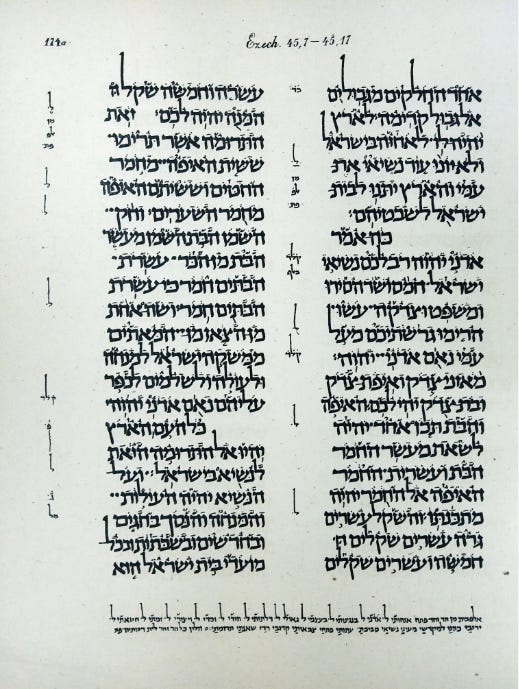 174a
Ezech. 45,7 — 45,17
אחד החלקים מגבול ים
אל גבול קדימה לארץ
יהיה לו לאחזה בישראל
ולא יונו עוד נשיאי את
עמי והארץ יתנו לבית
ישראל לשבטיהם
כה אמר
אדני יהוה רב לכם נשיאי
ישראל חמס ושד הסירו
ומשפט וצדקה עשו
הרימו גרשתיכם מעל
עמי נאם אדני יהוה
מאזני צדק ואיפת צדק
ובת צדק יהי לכם האיפה
והבת תכן אחד יהיה
לשאת מעשר החמר
הבת ועשירית החמר
האיפה אל החמר יהיה
מתכנתו והשקל עשרים
גרה עשרים שקלים
חמשה ועשרים שקלים
עשרה וחמשה שקל
המנה יהיה לכם זאת
התרומה אשר תרימו
ששית האיפה מחמר
החטים וששיתם האיפה
מחמר השערים וחק
השמן הבת השמן מעשר
הבת מן הכר עשרת
הבתים חמר כי עשרת
הבתים חמר ושה אחת
מן הצאן מן המאתים
ממשקה ישראל למנחה
ולעולה ולשלמים לכפר
עליהם נאם אדני יהוה
כל העם הארץ
יהיו אל התרומה הזאת
לנשיא בישראל ועל
הנשיא יהיה העולות
והמנחה והנסך בחגים
ובחדשים ובשבתות בכל
מועדי בית ישראל הוא